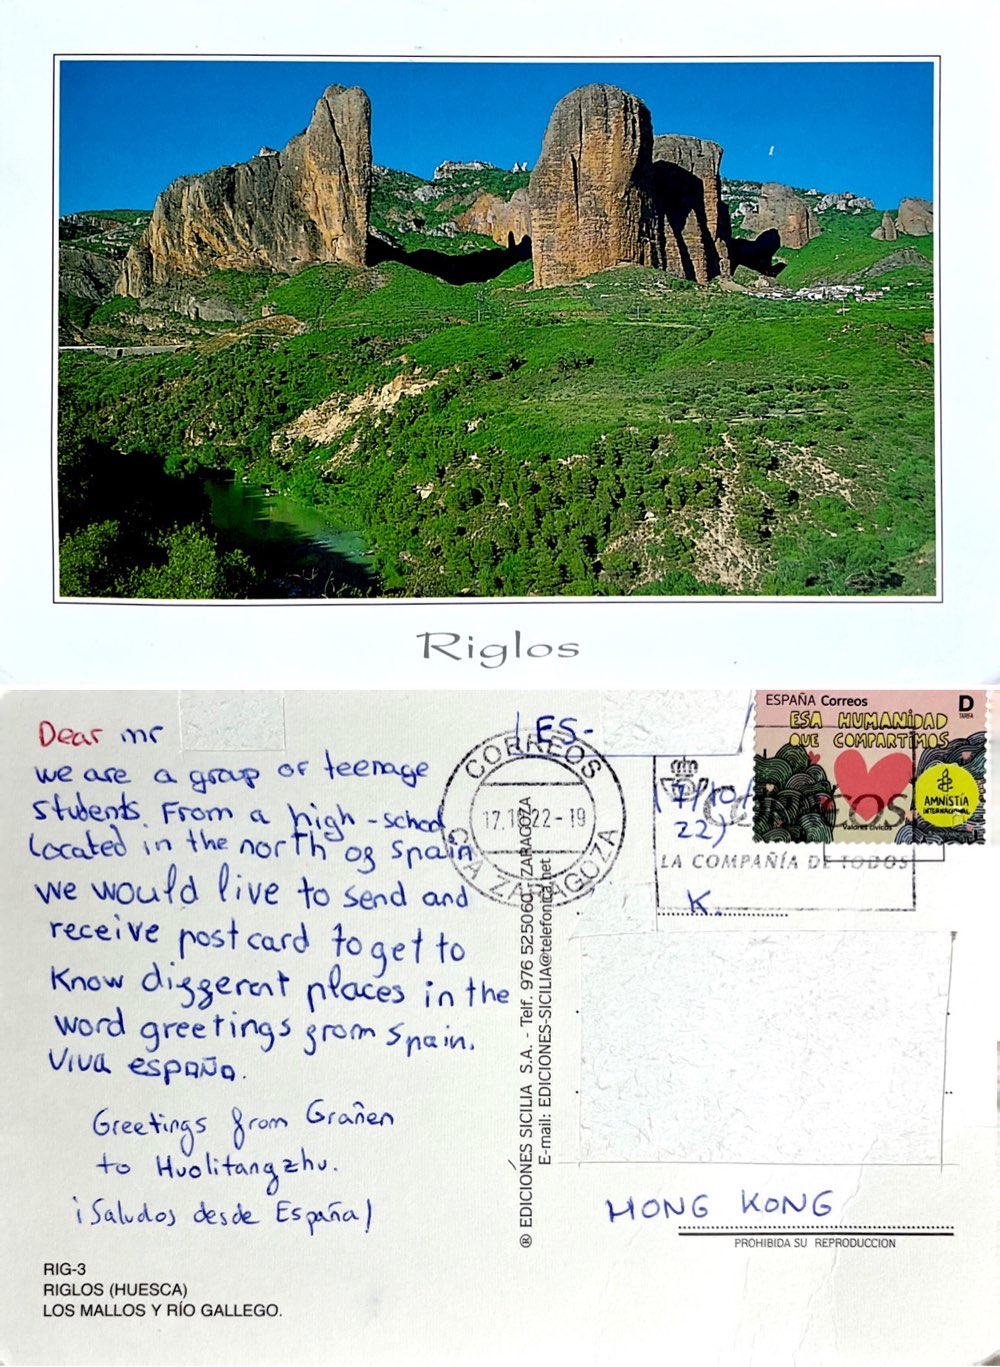 Riglos
Dear mr
we are a group of teenage
students. From a high-school
located in the north of spain
we would live to send and
receive postcard to get to
know different places in the
word greetings from spain.
Viva españa.
Greetings from Grañen
to Huolitangzhu.
¡Saludos desde España!
RIG-3
RIGLOS (HUESCA)
LOS MALLOS Y RÍO GALLEGO.
® EDICIONES SICILIA S.A. - Telf. 976 525060 - ZARAGOZA
E-mail: EDICIONES-SICILIA@telefonica.net
ES-
CORREOS
22-19
ZARAGOZA
ESPAÑA Correos
D
TARIFA
ESA HUMANIDAD
QUE COMPARTIMOS
AMNISTÍA
INTERNACIONAL
Valores cívicos
17/10/
22)
Correos
LA COMPAÑÍA DE TODOS
K.
HONG KONG
PROHIBIDA SU REPRODUCCION